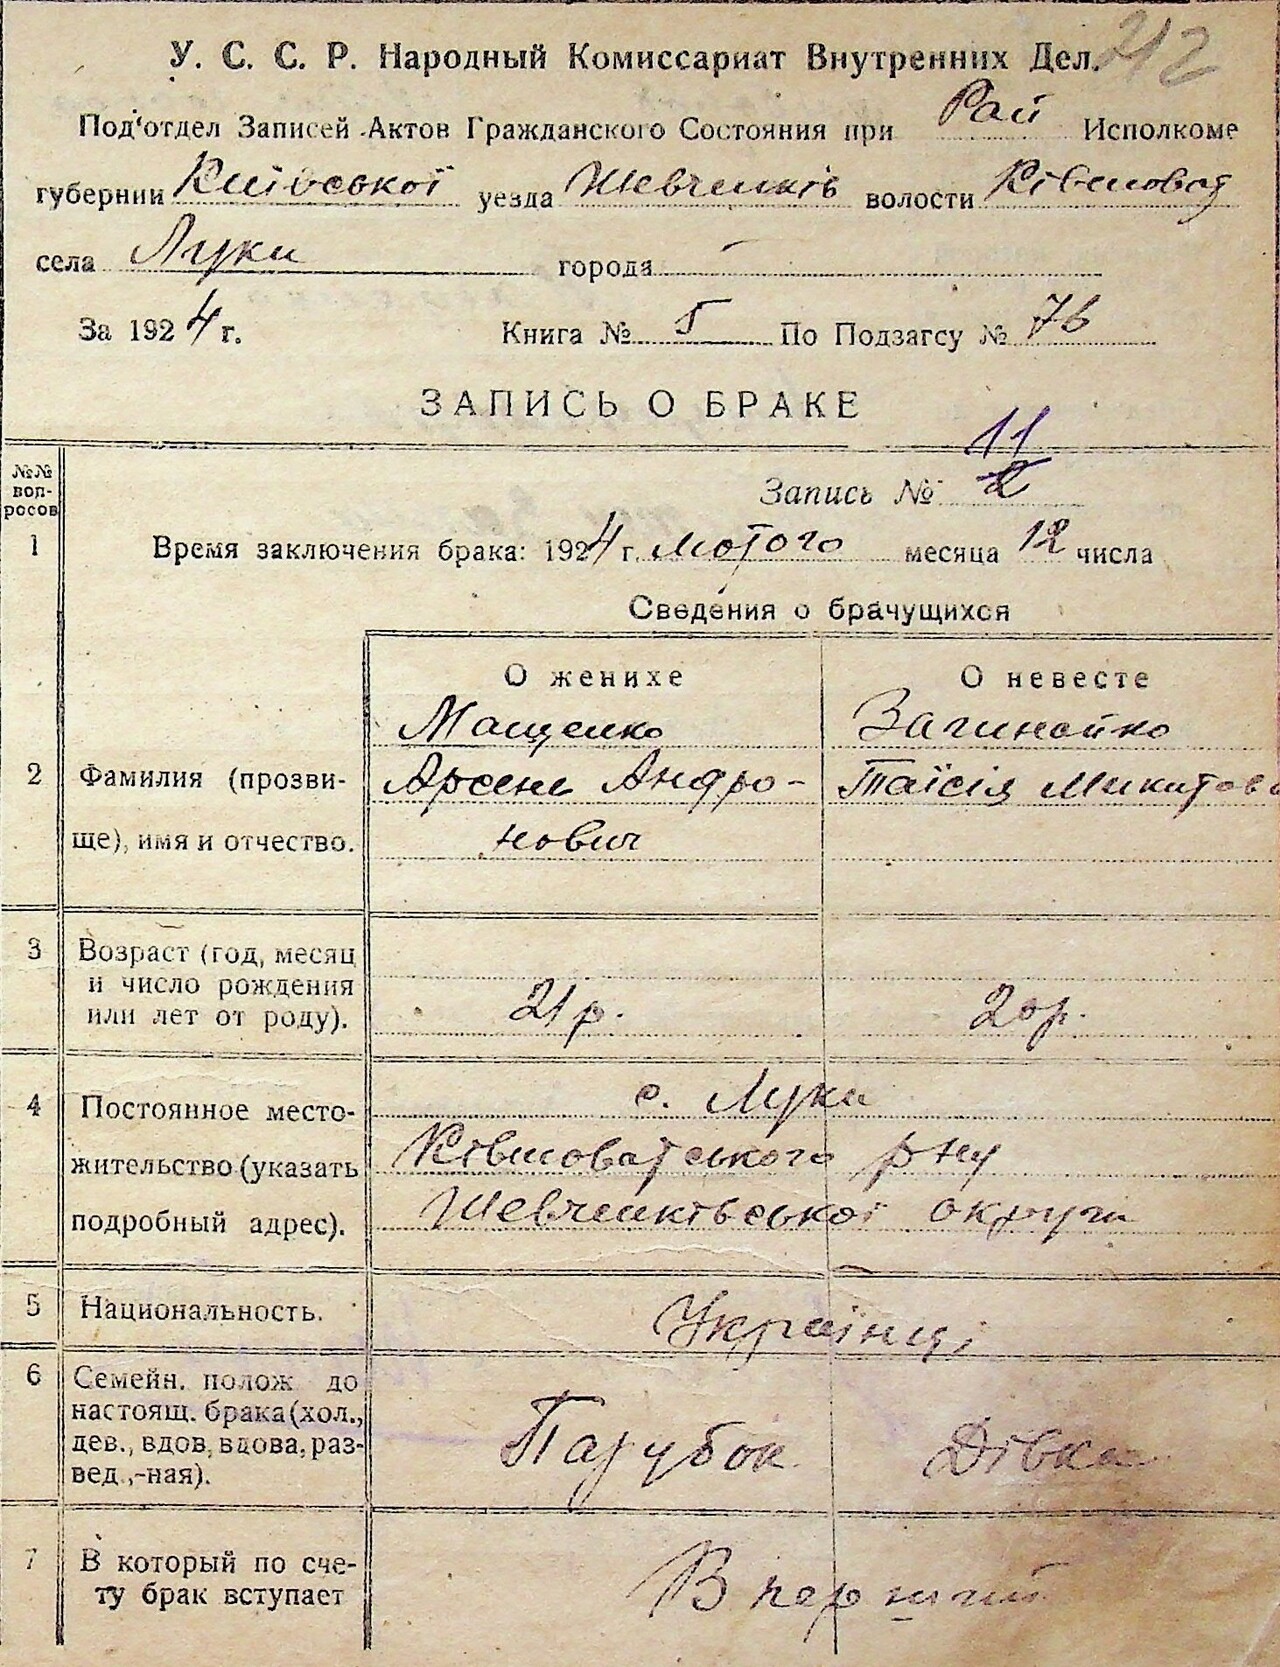 212
У. С. С. Р. Народный Комиссариат Внутренних Дел.
Под'отдел Записей Актов Гражданского Состояния при Рай Исполкоме
губернии Київської уезда Шевченків волости Ківшоват
села Луки города —
За 1924 г. Книга № 5 По Подзагсу № 76
ЗАПИСЬ О БРАКЕ
11
№№ воп-росов
Запись № 2
1 Время заключения брака: 1924 г. лютого месяца 12 числа
Сведения о брачущихся
О женихе О невесте
Мащенко Загинайко
2 Фамилия (прозви- Арсень Андро- Таїсія Микитов
ще), имя и отчество. нович
3 Возраст (год, месяц
и число рождения
или лет от роду). 21 р. 20 р.
4 Постоянное место- с. Луки
жительство (указать Ківшоватського р-ну
подробный адрес). Шевченківської округи
5 Национальность. Українці
6 Семейн. полож до
настоящ. брака (хол.,
дев., вдов, вдова, раз- Парубок Дівка
вед.,-ная).
7 В который по сче- В перший
ту брак вступает